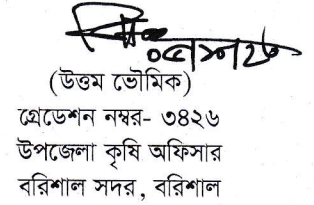 (উত্তম ভৌমিক)
গ্রেডেশন নম্বর- ৩৪২৬
উপজেলা কৃষি অফিসার
বরিশাল সদর, বরিশাল